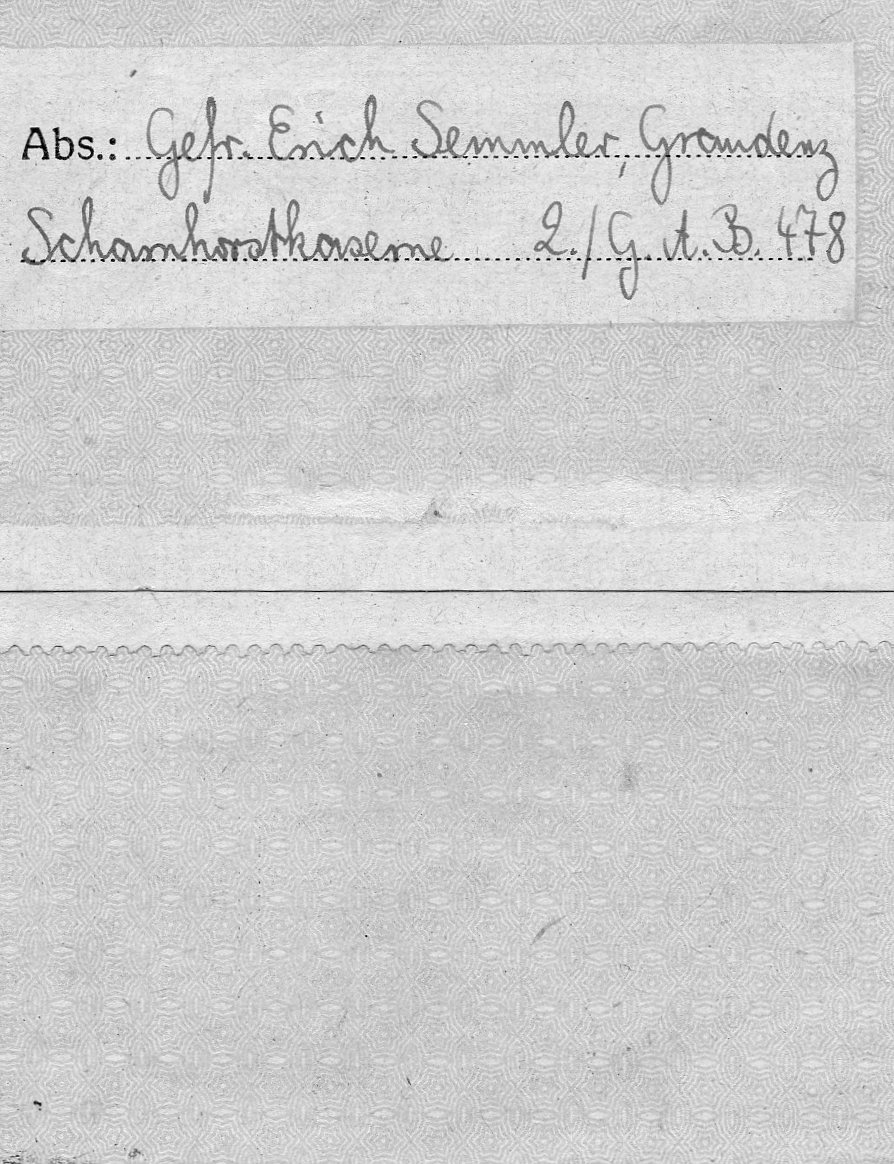 Abs.: Gefr. Erich Semmler, Graudenz
Scharnhorstkaserne 2./G.A.B. 478